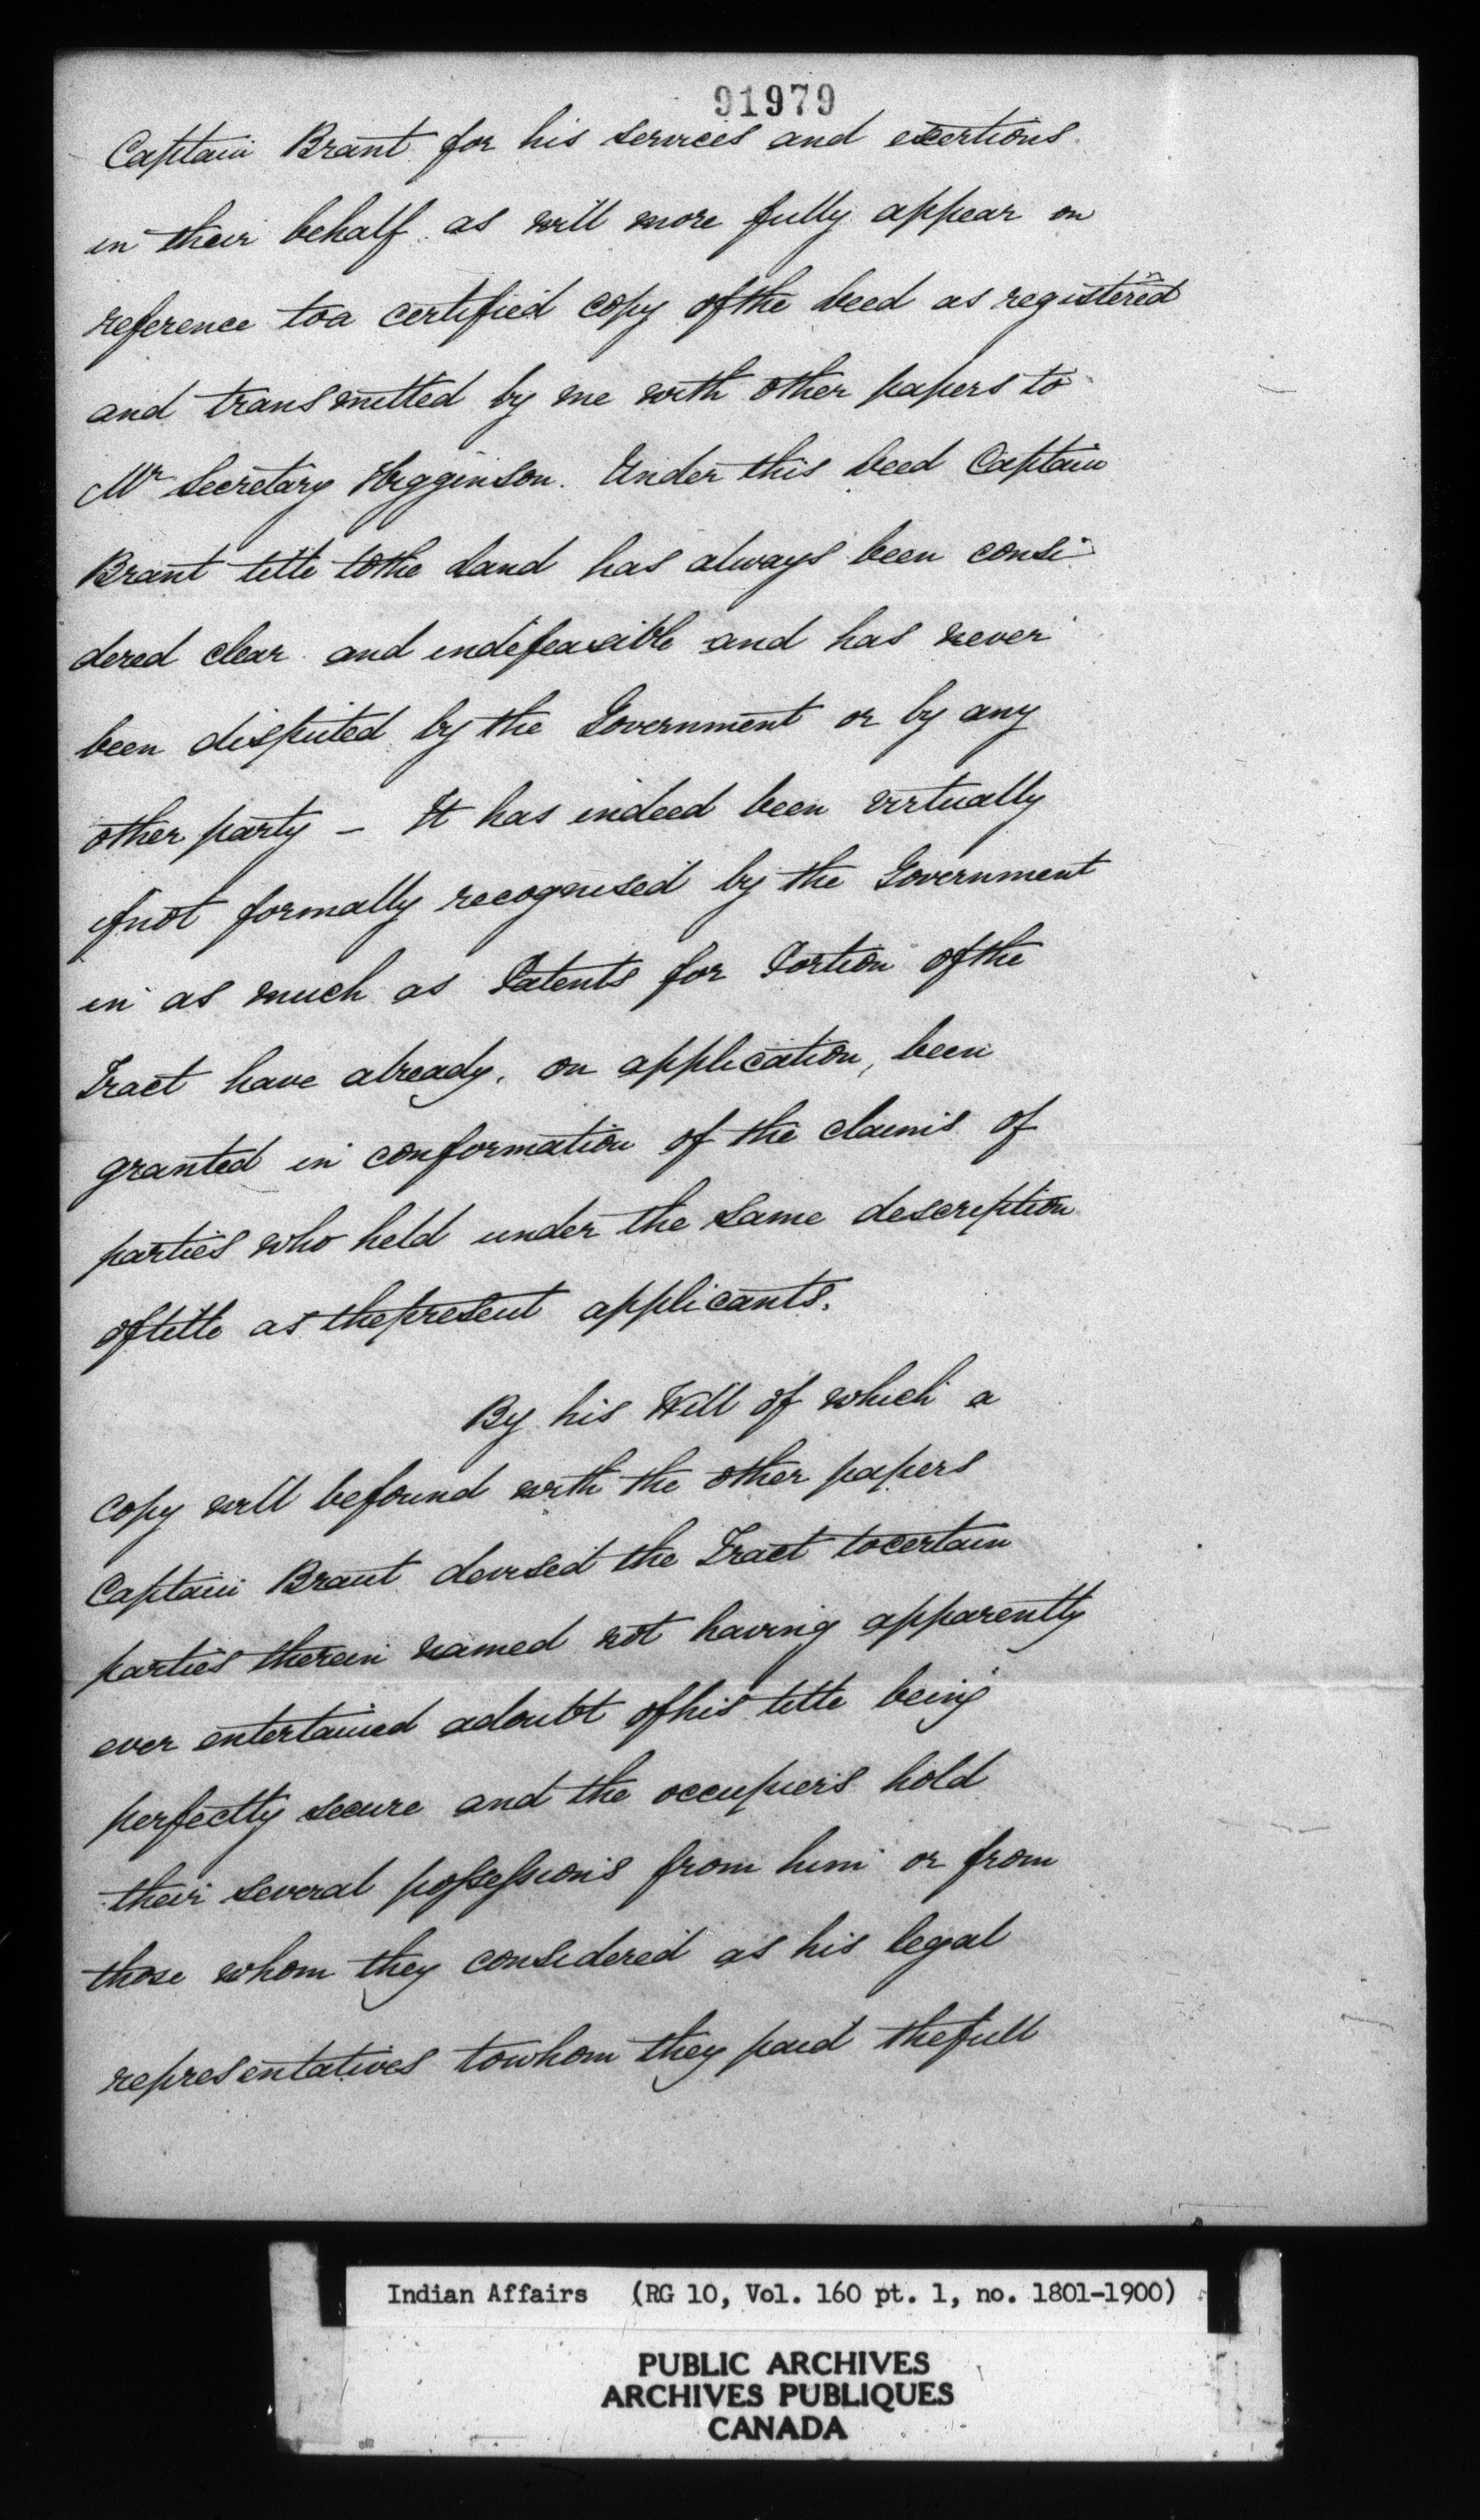 91979
Captain Brant for his services and exertions
in their behalf as will more fully appear on
reference to a certified copy of the Deed as registered
and transmitted by me with other papers to
Mr Secretary Higginson. Under this Deed Captain
Brant title to the Land has always been consi-
dered clear and indefeasible and has never
been disputed by the Government or by any
other party – It has indeed been virtually
if not formally recognised by the Government
in as much as Patents for Portion of the
Tract have already, on application, been
granted in conformation of the claims of
parties who held under the same description
of title as the present applicants.
By his Will of which a
copy will be found with the other papers
Captain Brant devised the Tract to certain
parties therein named not having apparently
ever entertained a doubt of his title being
perfectly secure and the occupiers hold
their several possessions from him or from
those whom they considered as his legal
representatives to whom they paid the full
Indian Affairs (RG 10, Vol. 160 pt. 1, no. 1801-1900)
PUBLIC ARCHIVES
ARCHIVES PUBLIQUES
CANADA